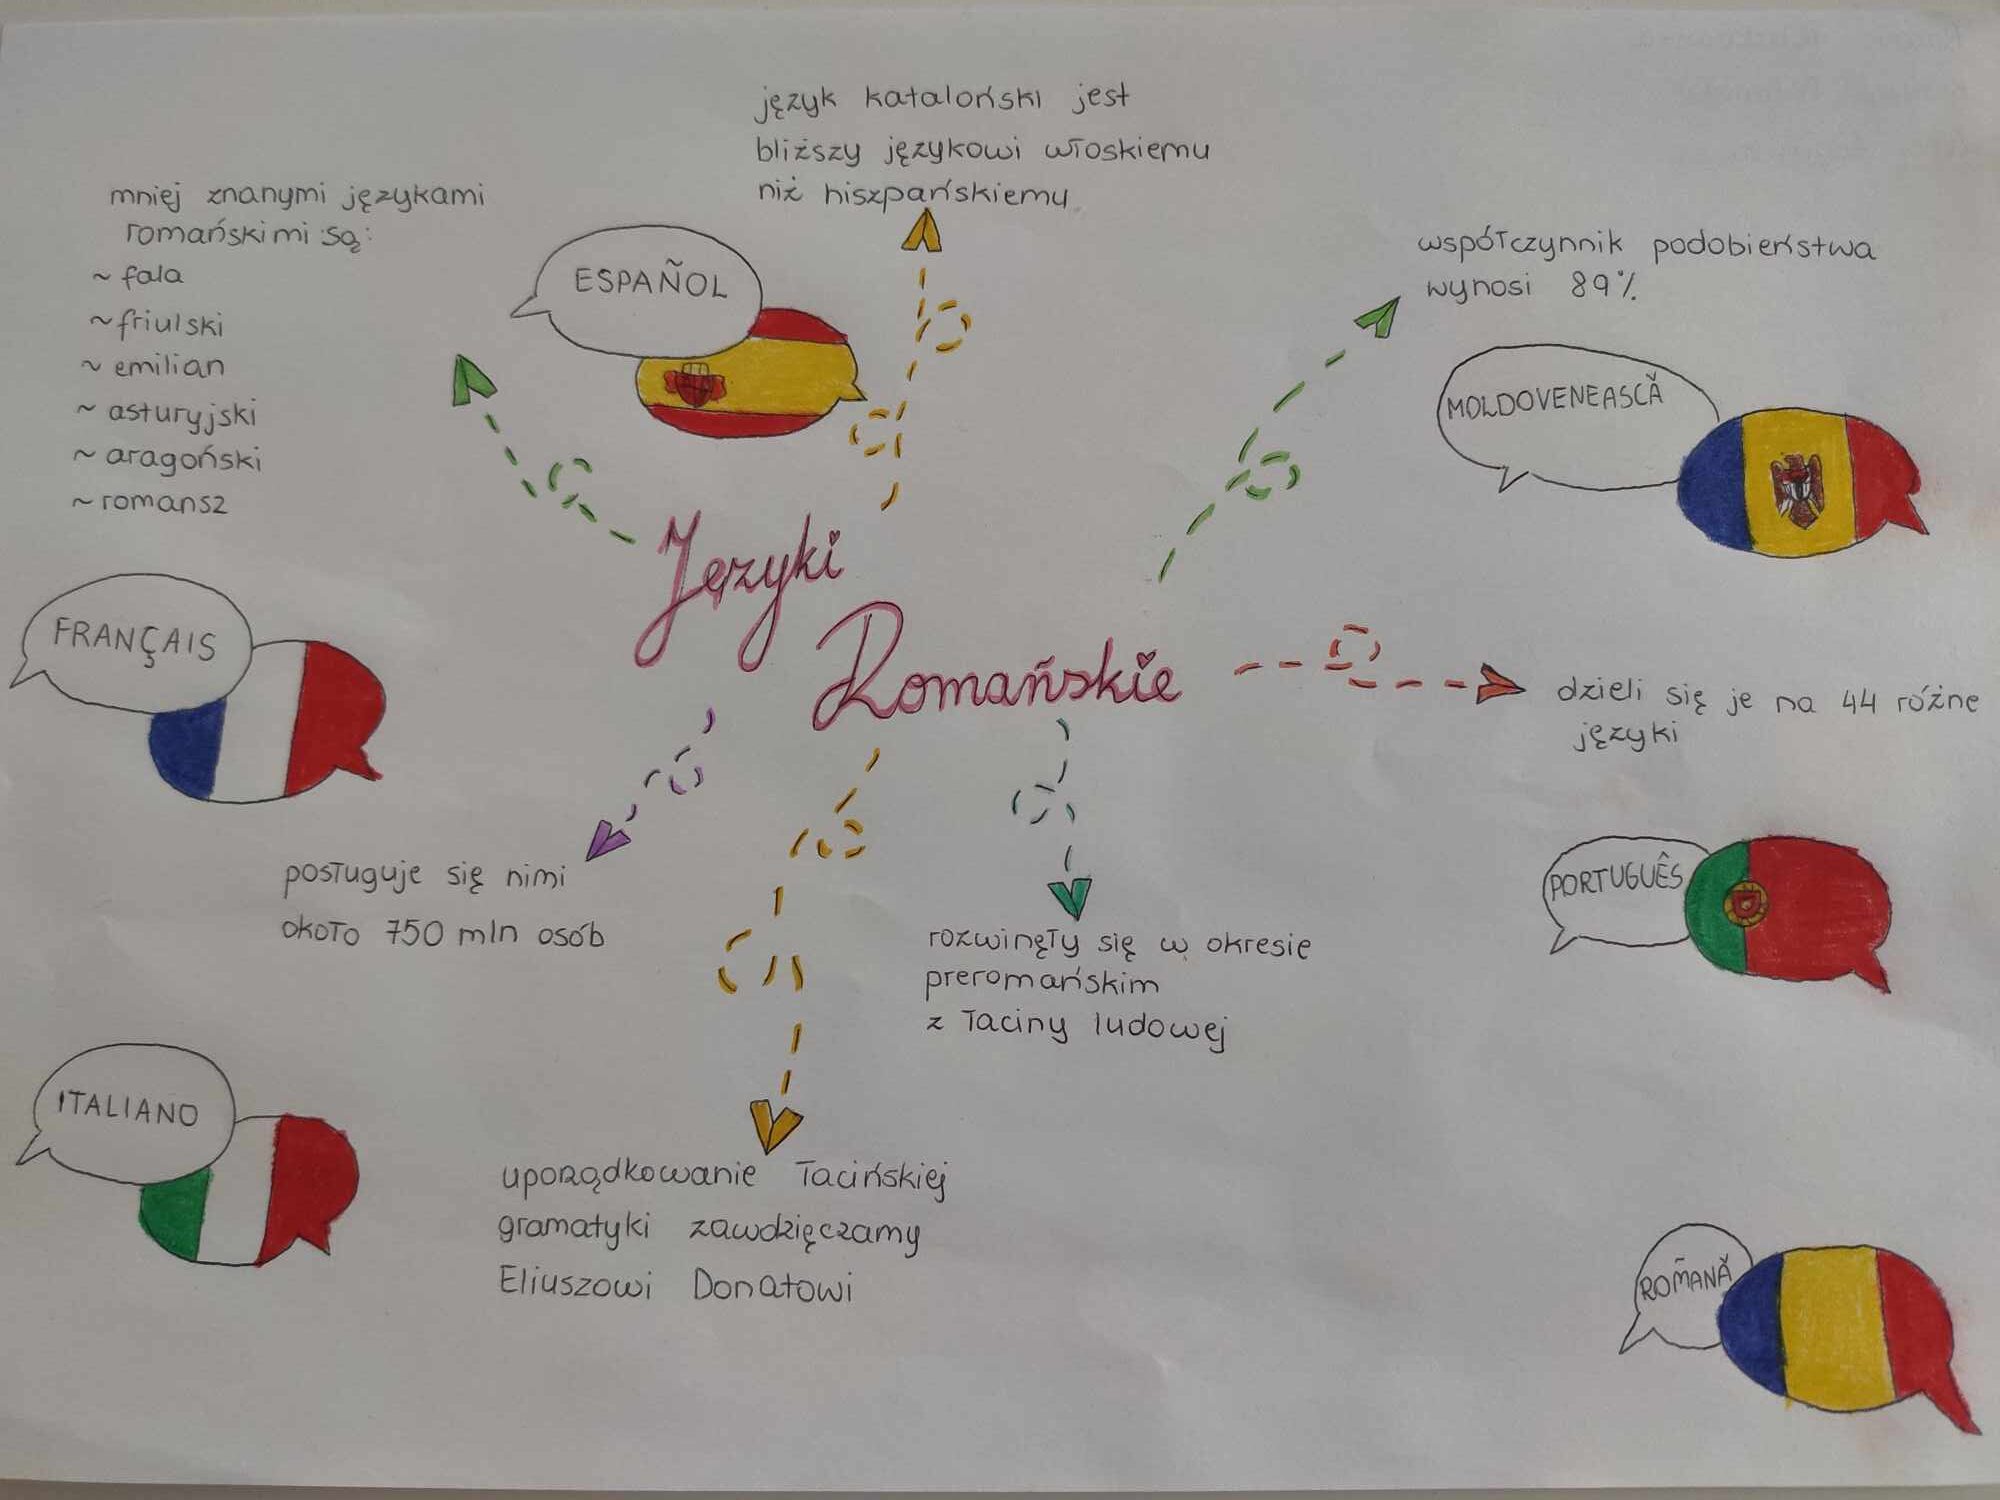 język kataloński jest
bliższy językowi włoskiemu
niż hiszpańskiemu
mniej znanymi językami
romańskimi są:
~ fala
~ friulski
~ emilian
~ asturyjski
~ aragoński
~ romansz
ESPAÑOL
współczynnik podobieństwa
wynosi 89%
MOLDOVENEASCĂ
Języki
Romańskie
FRANÇAIS
dzieli się je na 44 różne
języki
PORTUGUÊS
posługuje się nimi
około 750 mln osób
rozwinęły się w okresie
preromańskim
z łaciny ludowej
ITALIANO
uporządkowanie łacińskiej
gramatyki zawdzięczamy
Eliuszowi Donatowi
ROMÂNĂ